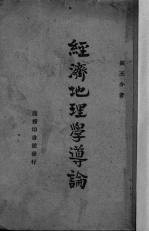 經濟地理學導論
商務印書館發行